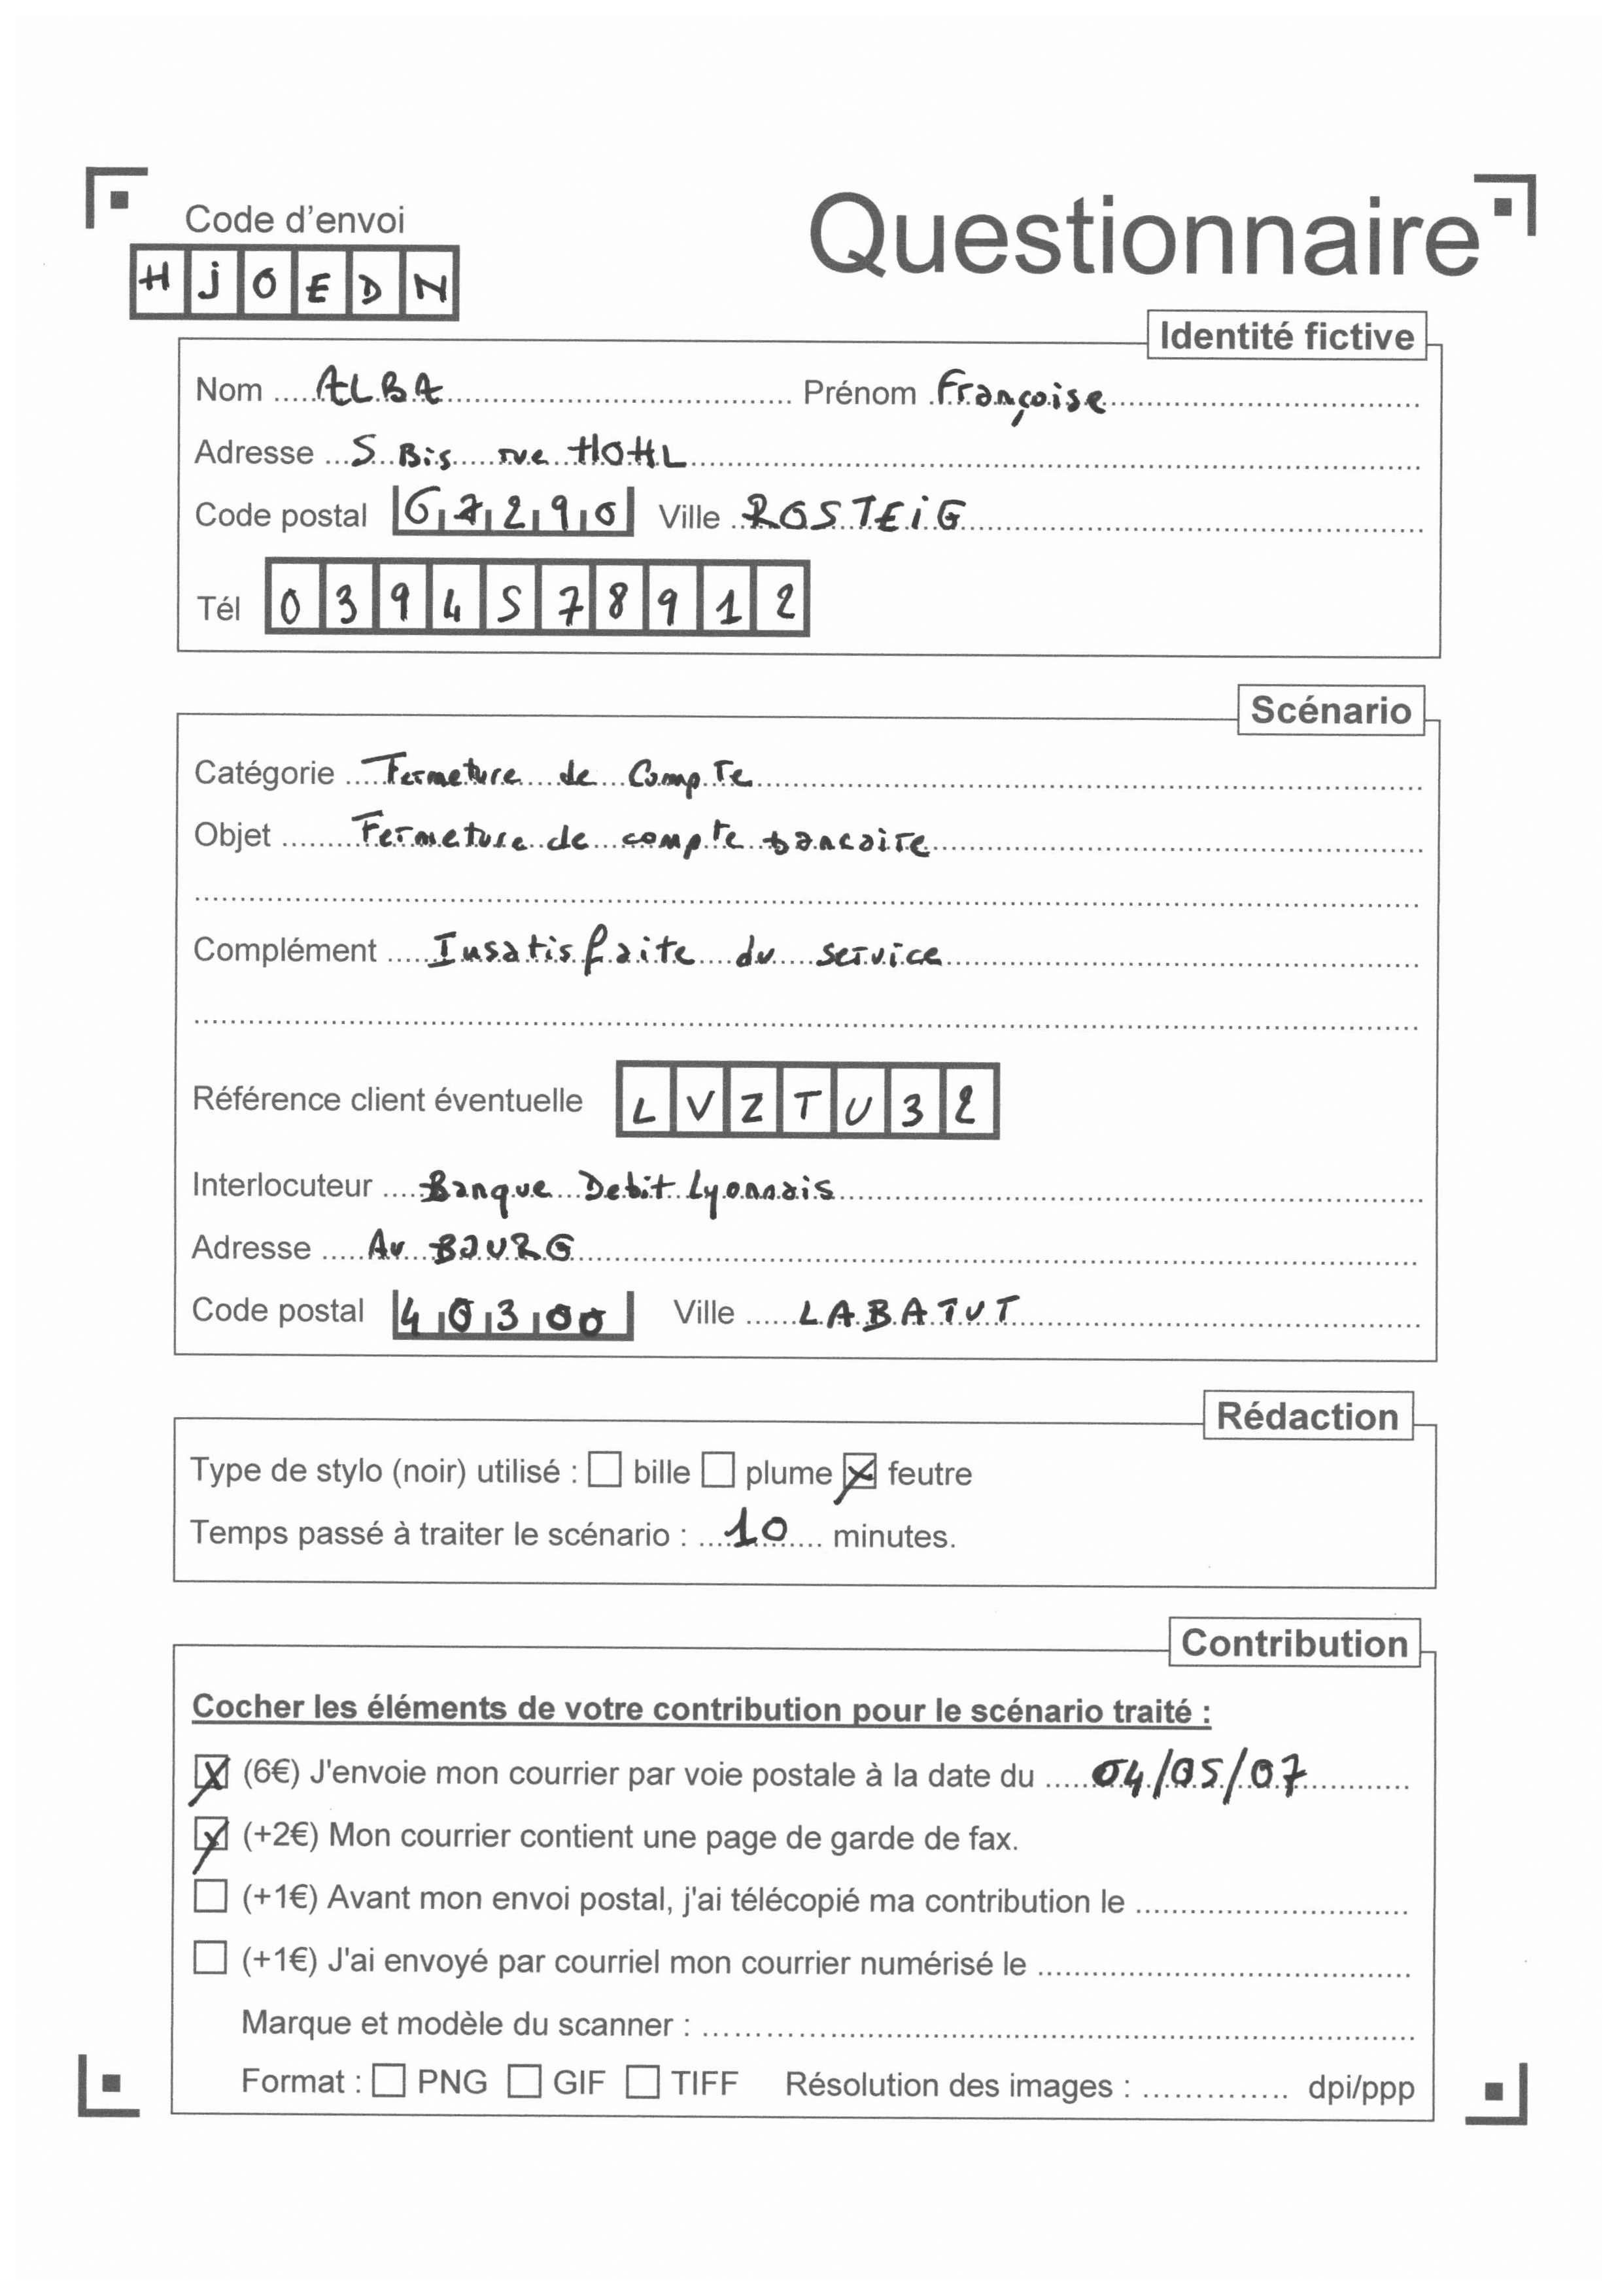 Code d'envoi
Questionnaire
HJOEDN
Identité fictive
Nom ALBA Prénom Françoise
Adresse 5 Bis rue HOHL
Code postal 67290 Ville ROSTEIG
Tél 0394578912
Scénario
Catégorie Fermeture de Compte
Objet Fermeture de compte bancaire
Complément Insatisfaite du service
Référence client éventuelle LVZTU32
Interlocuteur Banque Debit Lyonnais
Adresse Au BOURG
Code postal 40300 Ville LABATUT
Rédaction
Type de stylo (noir) utilisé : bille plume feutre
Temps passé à traiter le scénario : 10 minutes.
Contribution
Cocher les éléments de votre contribution pour le scénario traité :
(6€) J'envoie mon courrier par voie postale à la date du 04/05/07
(+2€) Mon courrier contient une page de garde de fax.
(+1€) Avant mon envoi postal, j'ai télécopié ma contribution le
(+1€) J'ai envoyé par courriel mon courrier numérisé le
Marque et modèle du scanner :
Format : PNG GIF TIFF Résolution des images : dpi/ppp